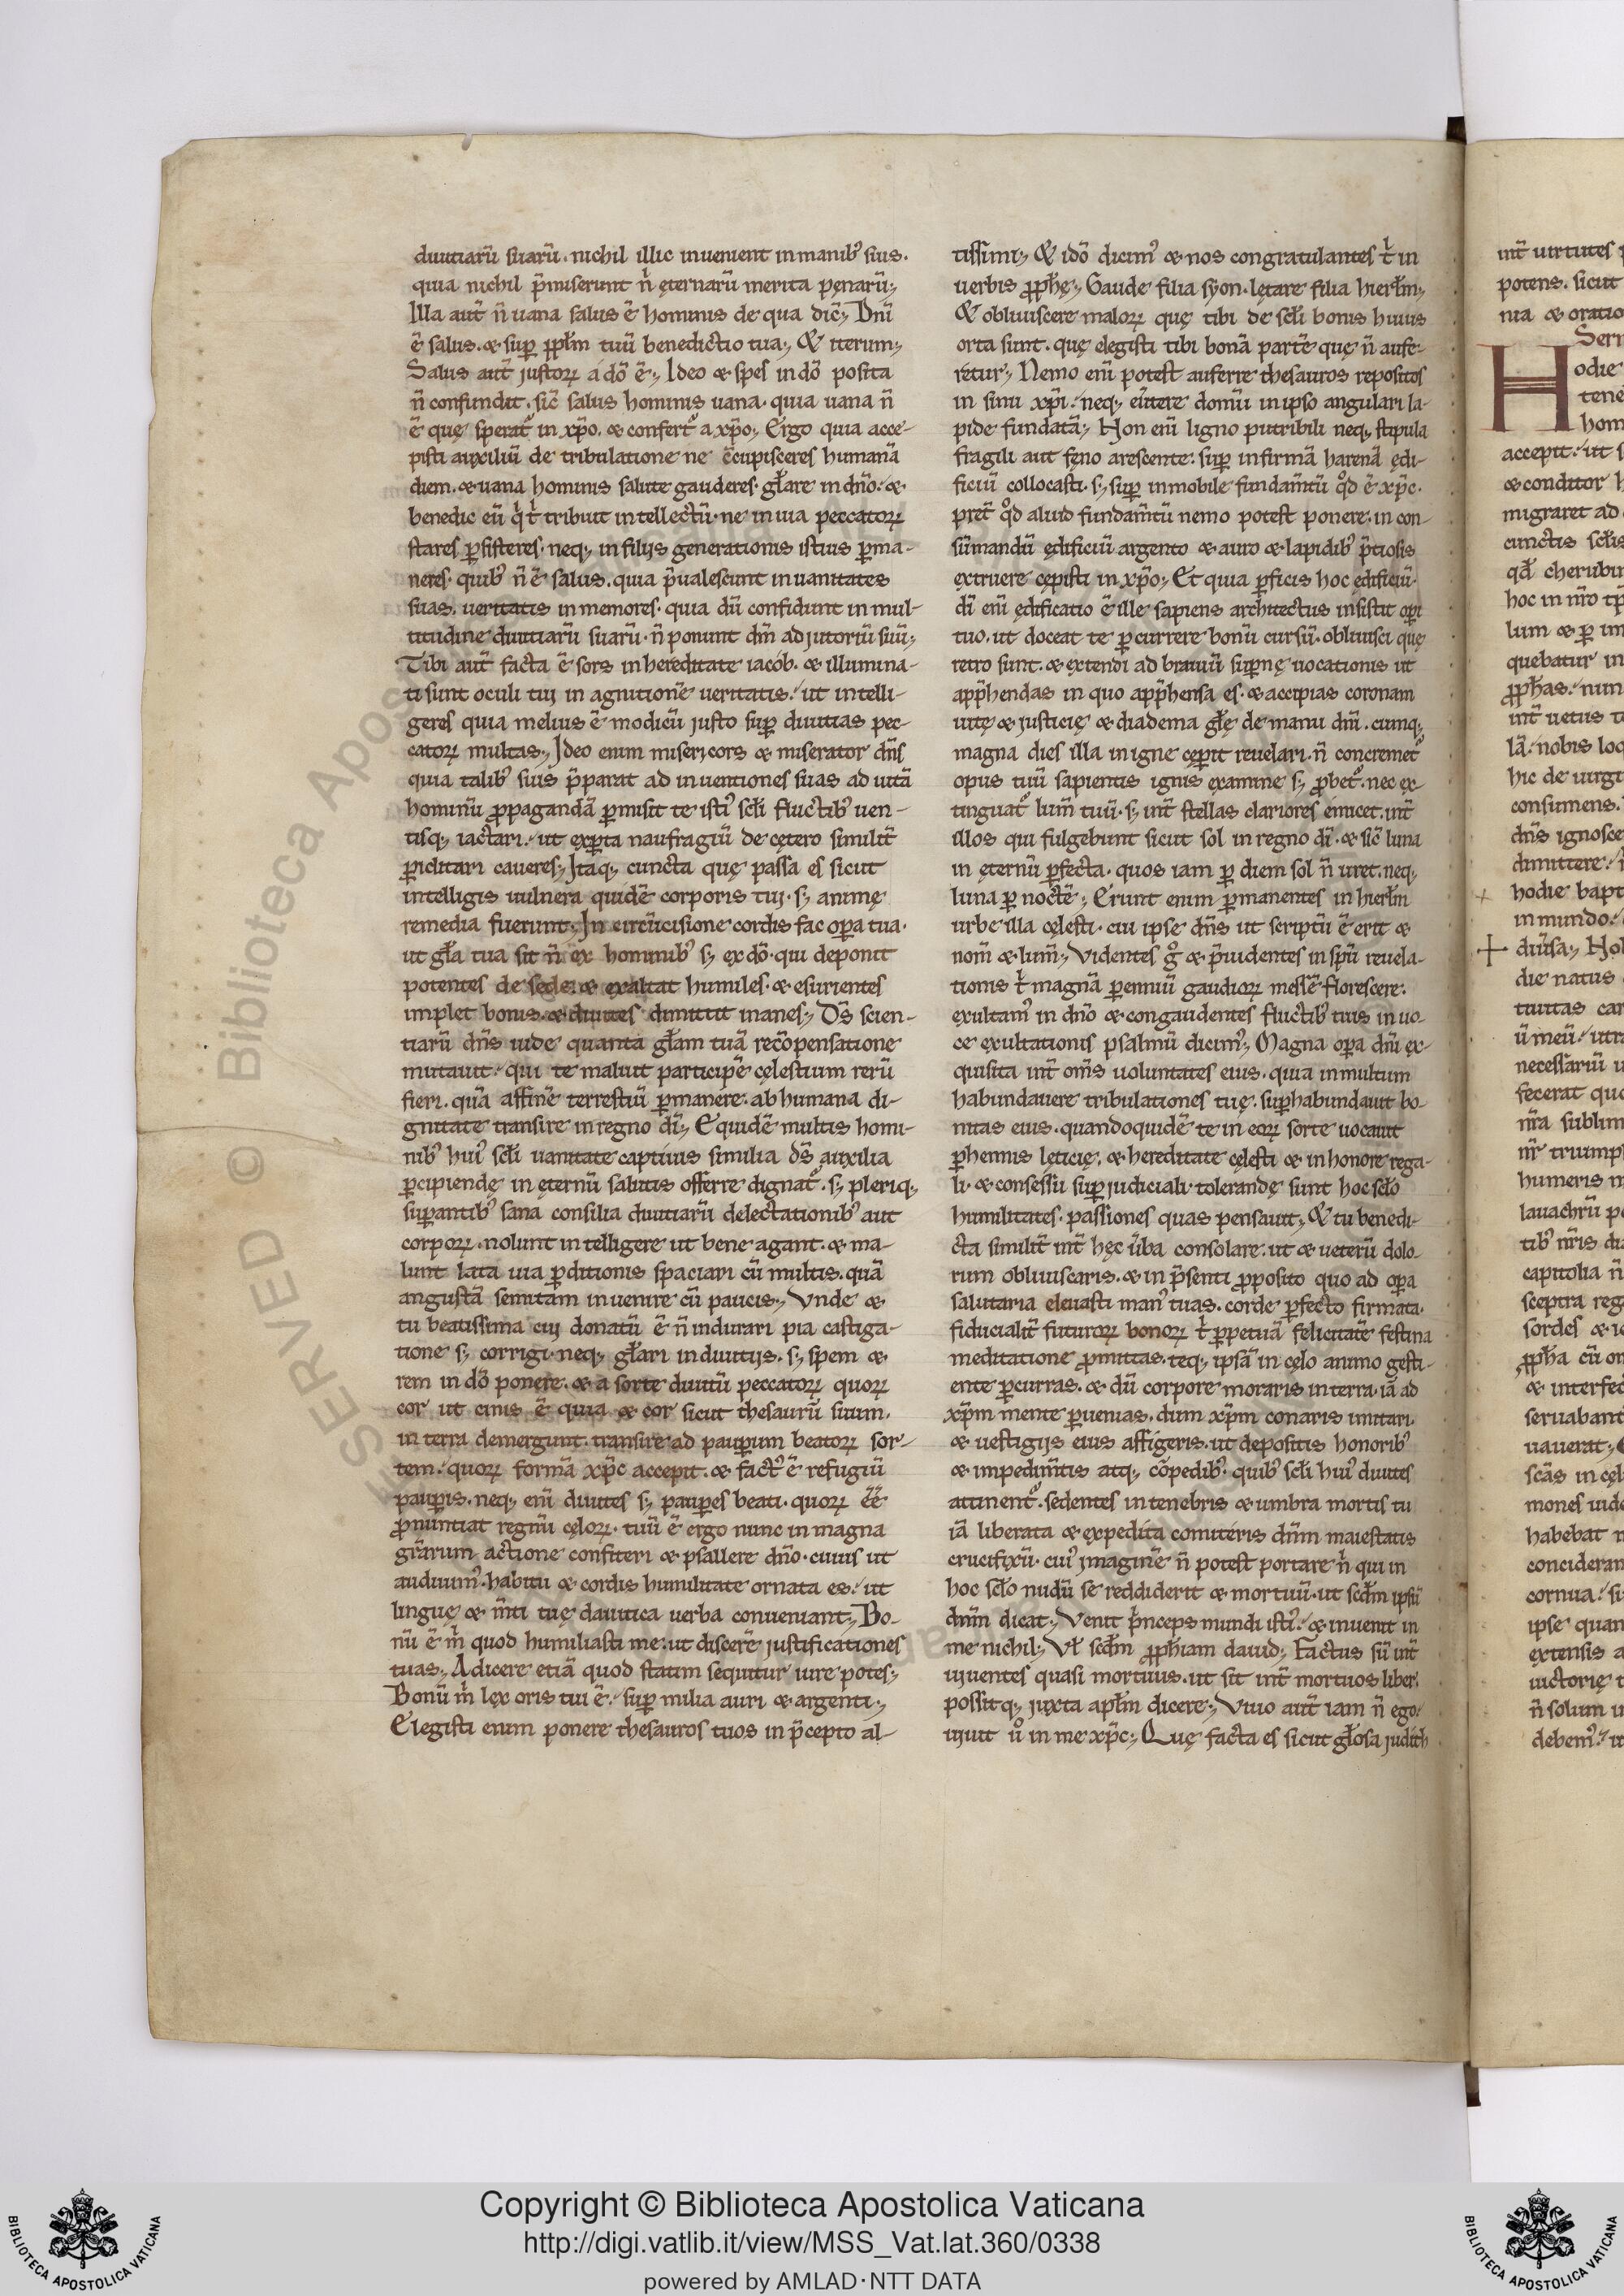 diuitiarũ suarũ. nichil illic inuenient in manibꝰ suis.
quia nichil p̃miserunt ñ ęternarũ merita pęnarũ;
Illa aut̃ ñ uana salus ẽ hominis de qua dic̃; Dñi
ẽ salus. & suꝑ pp̃lm tuũ benedictio tua; & iterum;
Salus aut̃ justoꝝ a dõ ẽ; Ideo & spes in dõ posita
ñ confundit. sic̃ salus hominis uana. quia uana ñ
ẽ quę sperat᷑ in xp̃o. & confert᷑ a xp̃o; Ergo quia acce-
pisti auxiliũ de tribulatione ne c̃cupisceres humanã
diem. & uana hominis salute gauderes. gła̅re in dño. &
benedic eũ q̇ t̄ tribuit intellectũ. ne in uia peccatoꝝ
stares ꝑsisteres. neq; in filijs generationis istius ꝑma-
neres. quibꝰ ñ ẽ salus. quia p̃ualescunt in uanitates
suas. ueritatis in memores. quia dũ confidunt in mul-
titudine diuitiarũ suarũ. ñ ponunt dm̃ adjutoriũ suũ;
Tibi aut̃ facta ẽ sors in hereditate iacob. & illumina-
ti sunt oculi tui in agnitionẽ ueritatis. ut intelli-
geres quia melius ẽ modicũ justo suꝑ diuitias pec-
catoꝝ multas; Ideo enim misericors & miserator dñs
quia talibꝰ suis p̃parat ad inuentiones suas ad uitã
hominũ ꝓpagandã ꝑmisit te istiꝰ scl̃i fluctibꝰ uen-
tisq; iactari. ut exꝑta naufragiũ de cętero similit̃
ꝑiclitari caueres; Itaq; cuncta quę passa es sicut
intelligis uulnera quidẽ corporis tui. s; animę
remedia fuerunt; In circũcisione cordis fac oꝑa tua.
ut gl̃a tua sit ñ ex hominibꝰ s; ex dõ. qui deponit
potentes de sede. & exaltat humiles. & esurientes
implet bonis. & diuites dimittit inanes; Ds̃ scien-
tiarũ dñs uide quanta gl̃am tuã recõpensatione
mutauit. qui te maluit participẽ cęlestium rerũ
fieri. quã affinẽ terrestiũ ꝑmanere. ab humana di-
gnitate transire in regno dĩ; Equidẽ multis homi-
nibꝰ huiꝰ scl̃i uanitate captiuis similia ds̃ auxilia
ꝑcipiendę in ęternũ salutis offerre dignat᷑. s; pleriq;
suꝑantibꝰ sana consilia diuitiarũ delectationibꝰ aut
corpoꝝ. nolunt intelligere ut bene agant. & ma-
lunt lata uia ꝑditionis spaciari cũ multis. quã
angustã semitam inuenire cũ paucis; Vnde &
tu beatissima cui donatũ ẽ ñ indurari pia castiga-
tione s; corrigi. neq; gl̃ari in diuitijs. s; spem &
rem in dõ ponere. & a sorte diuitũ peccatoꝝ quoꝝ
cor ut cinis ẽ quia & cor sicut thesaurũ suum.
in terra demergunt. transire ad pauꝑum beatoꝝ sor-
tem. quoꝝ formã xp̃c accepit. & factꝰ ẽ refugiũ
pauꝑis. neq; enĩ diuites s; pauꝑes beati. quoꝝ ẽẽ
ꝓnuntiat regnũ cęloꝝ. tuũ ẽ ergo nunc in magna
gr̃arum actione confiteri & psallere dño. cuius ut
audiuimꝰ. habitu & cordis humilitate ornata es. ut
linguę & m̃ti tuę dauitica uerba conueniant; Bo-
nũ ẽ m̃ quod humiliasti me. ut discerẽ justificationes
tuas; Adicere etiã quod statim sequitur iure potes;
Bonũ m̃ lex oris tui ẽ. suꝑ milia auri & argenti;
Elegisti enim ponere thesauros tuos in p̃cepto al-
tissimi; & idõ dicimꝰ & nos congratulantes t̄ in
uerbis ꝓph̃ę; Gaude filia syon. lętare filia hierl̃m;
& obliuiscere maloꝝ quę tibi de scl̃i bonis huius
orta sunt. quę elegisti tibi bonã partẽ quę ñ aufe-
retur; Nemo enĩ potest auferre thesauros repositos
in sinu xp̃i. neq; euttere domũ in ipso angulari la-
pide fundatã; Non enĩ ligno putribili neq; stipula
fragili aut fęno arescente. suꝑ infirmã harenã ędi-
ficiũ collocasti. s; suꝑ inmobile fundam̃tũ qd̃ ẽ xp̃c.
pret̃ qd̃ aliud fundam̃tũ nemo potest ponere. in con-
sũmandũ ędificiũ argento & auro & lapidibꝰ p̃tiosis
extruere cępisti in xp̃o; Et quia ꝑficis hoc ędificiũ.
dĩ enĩ ędificatio ẽ ille sapiens architectus insistit oꝑi
tuo. ut doceat te ꝑcurrere bonũ cursũ. obliuisci quę
retro sunt. & extendi ad brauiũ suꝑnę uocationis ut
app̃hendas in quo app̃hensa es. & accipias coronam
uitę & justicię & diadema gl̃ę de manu dñi. cumq;
magna dies illa in igne cęꝑit reuelari. ñ concremet᷑
opus tuũ sapientis ignis examine s; ꝓbet᷑. nec ex-
tinguat᷑ lum̃ tuũ. s; int̃ stellas clariores emicet. int̃
illos qui fulgebunt sicut sol in regno dĩ. & sic̃ luna
in ęternũ ꝑfecta. quos iam ꝑ diem sol ñ uret. neq;
luna ꝑ noctẽ; Erunt enim ꝑmanentes in hierl̃m
urbe illa cęlesti. cui ipse dñs ut scriptũ ẽ erit &
nom̃ & lum̃; Videntes g̊ & p̃uidentes in sp̃u reuela-
tionis t̄ magnã ꝑenniũ gaudioꝝ messẽ florescere.
exultamꝰ in dño & congaudentes fluctibꝰ tuis in uo-
ce exultationis psalmũ dicimꝰ; Magna oꝑa dñi ex-
quisita int̃ om̃s uoluntates eius. quia in multum
habundauere tribulationes tuę. suꝑhabundauit bo-
nitas eius. quandoquidẽ te in eoꝝ sorte uocauit
ꝑhennis lęticię. & hereditate cęlesti & in honore rega-
li. & consessu suꝑ judiciali. tolerandę sunt hoc scl̃o
humilitates. passiones quas pensauit; & tu benedi-
cta similit̃ int̃ hęc ũba consolare. ut & ueterũ dolo-
rum obliuiscaris. & in p̃senti ꝓposito quo ad oꝑa
salutaria eleuasti manꝰ tuas. corde ꝑfecto firmata.
fiducialit̃ futuroꝝ bonoꝝ t̄ ꝑpetuã felicitatẽ festina
meditatione ꝓmittas. teq; ipsã in cęlo animo gesti-
ente ꝑcurras. & dũ corpore moraris in terra. iã ad
xp̃m mente ꝑuenias. dum xp̃m conaris imitari.
& uestigijs eius affigeris. ut depositis honoribꝰ
& impedim̃tis atq; cõpedibꝰ. quibꝰ scl̃i huiꝰ diuites
attinent᷑. sedentes in tenebris & umbra mortis tu
iã liberata & expedita comiteris dñm maiestatis
crucifixũ. cuiꝰ imaginẽ ñ potest portare ñ qui in
hoc scl̃o nudũ se reddiderit & mortuũ. ut scd̃m ipsũ
dñm dicat; Venit p̃nceps mundi istiꝰ. & inuenit in
me nichil; Vl̃ scd̃m ꝓph̃iam dauid; Factus sũ int̃
uiuentes quasi mortuus. ut sit int̃ mortuos liber.
possitq; juxta apl̃m dicere; Viuo aut̃ iam ñ ego.
uiuit ů in me xp̃c; Quę facta es sicut gl̃osa judith
int̃ uirtutes
potens. sicut
nia & oratio
Serm
Hodie
tene
hom
accepit. ut s
& conditor h
migraret ad
cunctis scl̃is
qd̃ cherubin
hoc in nr̃o tp̃
lum & ꝑ im
quebatur in
ꝓph̃as. nun
int̃ uetus t
lã. nobis loq
hic de uirgi
consumens.
dñs ignosce
dimittere.
hodie bapt
in mundo.
diũsa; Hod
die natus
tiuitas car
ũ meũ. utra
necessariũ u
fecerat quo
nr̃a sublim
nr̃ triump
humeris m
lauachrũ p
tibꝰ nr̃is di
capitolia ñ
sceptra reg
sordes & i
ꝓph̃a cũ om
& interfec
seruabant
uauerat;
scãs in cęl
mones uid
habebat
conciderant
cornua. si
ipse quan
extensis a
uictorię t
ñ solum u
debemꝰ. ut
Copyright © Biblioteca Apostolica Vaticana
http://digi.vatlib.it/view/MSS_Vat.lat.360/0338
powered by AMLAD·NTT DATA
BIBLIOTECA APOSTOLICA VATICANA
BIBLIOTECA APOSTOLICA VATICANA